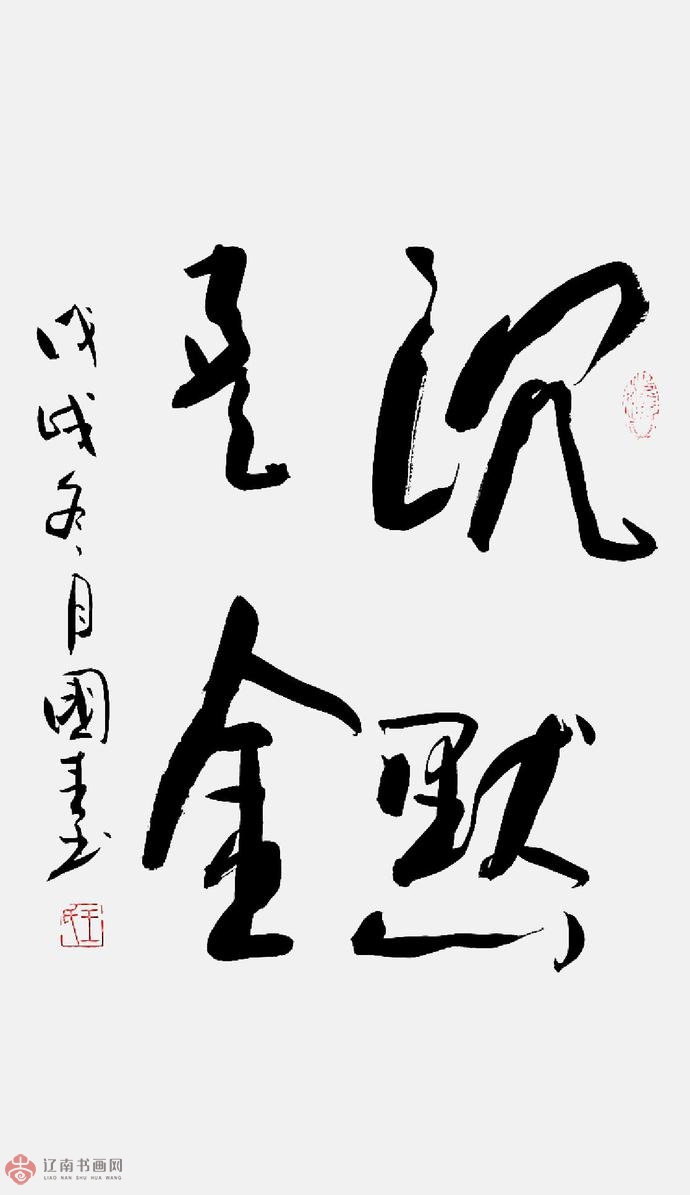 沉默
是金
戊戌冬月國書
辽南书画网
LIAO NAN SHU HUA WANG